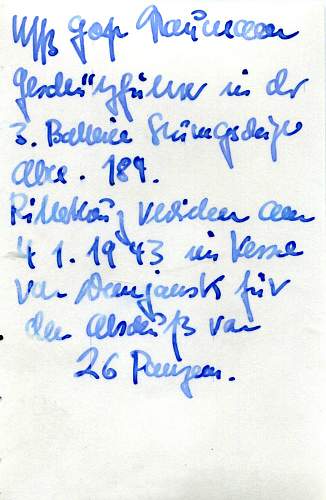 Uffz Naumann
Geschützführer in der
3. Batterie Sturmgeschütz
Abt. 184.
Ritterkreuz verliehen am
4 1. 1943 im Kessel
von Demjansk für
den Abschuß von
26 Panzern.